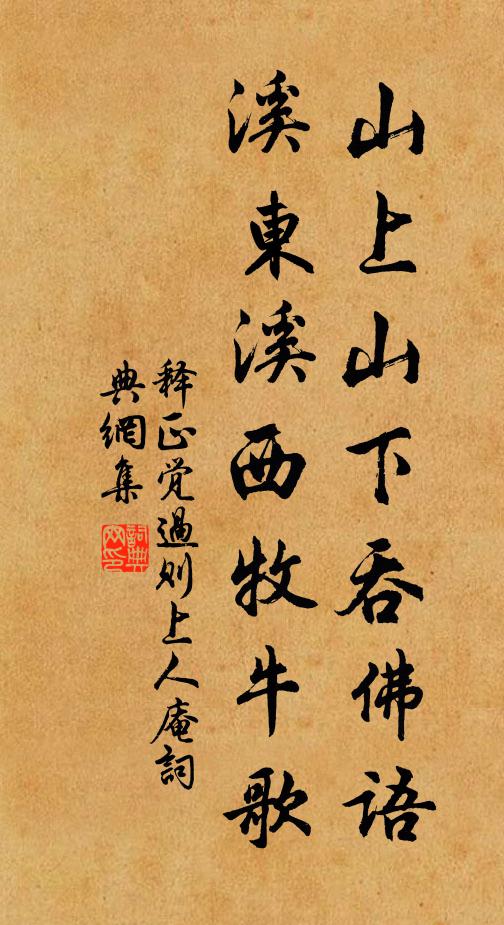 山上山下吞佛語
溪東溪西牧牛歌
释正觉過則上人庵詞
典網集
詞典网印